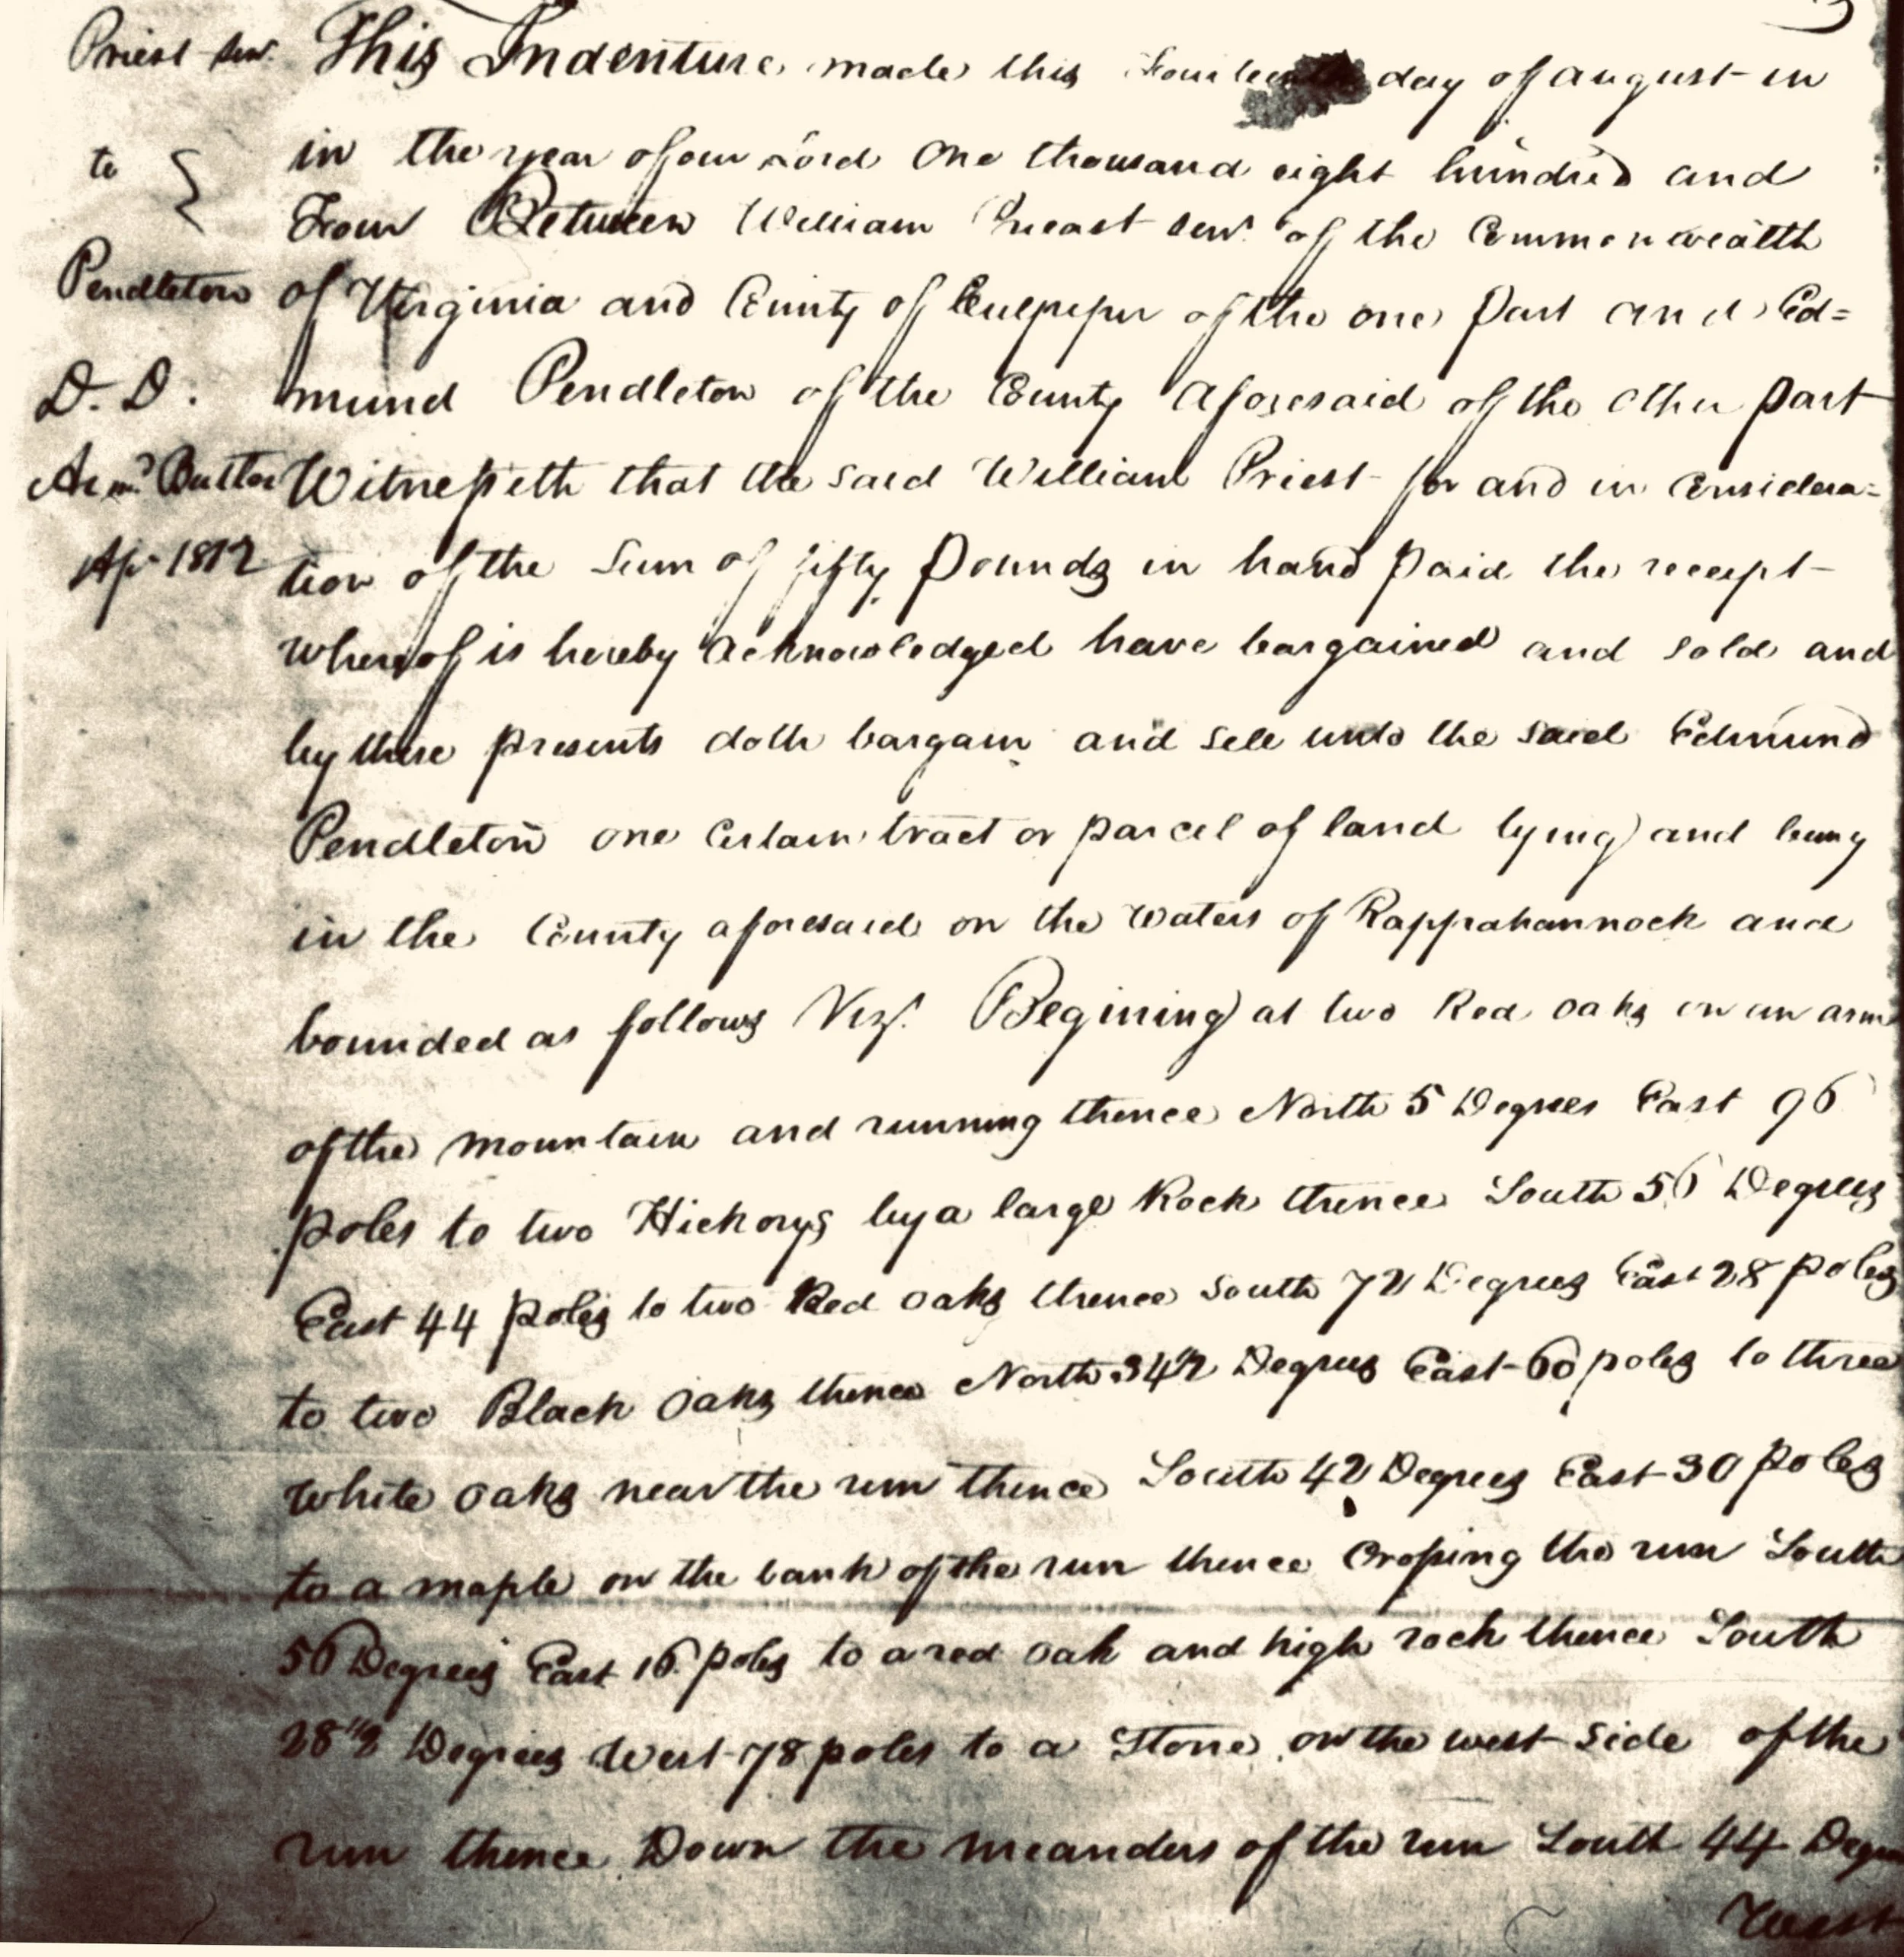 Priest Sen.
to
Pendleton
D. D.
Butler
Ap. 1812
This Indenture made this day of august in
in the year of our Lord One thousand eight hundred and
Four Between William Preast Sen. of the Commonwealth
of Virginia and County of Culpeper of the one part and Ed=
mund Pendleton of the County Aforesaid of the Other part
Witnesseth that the said William Priest for and in Considera=
tion of the Sum of fifty Pounds in hand Paid the receipt
whereof is hereby Acknowledged have bargained and sold and
by these presents doth bargain and sell unto the said Edmund
Pendleton one certain tract or parcel of land lying and being
in the County aforesaid on the waters of Rappahannock and
bounded as follows Viz. Begining at two Red oaks on an arm
of the mountain and running thence North 5 Degrees East 96
poles to two Hickorys by a large Rock thence South 56 Degrees
East 44 poles to two Red oaks thence South 72 Degrees East 28 poles
to two Black Oaks thence North 34 1/2 Degrees East 60 poles to three
white oaks near the run thence South 42 Degrees East 30 poles
to a maple on the bank of the run thence Crossing the run South
56 Degrees East 16 poles to a red oak and high rock thence South
28 1/2 Degrees West 78 poles to a Stone on the west side of the
run thence Down the meanders of the run South 44 Degrees
West